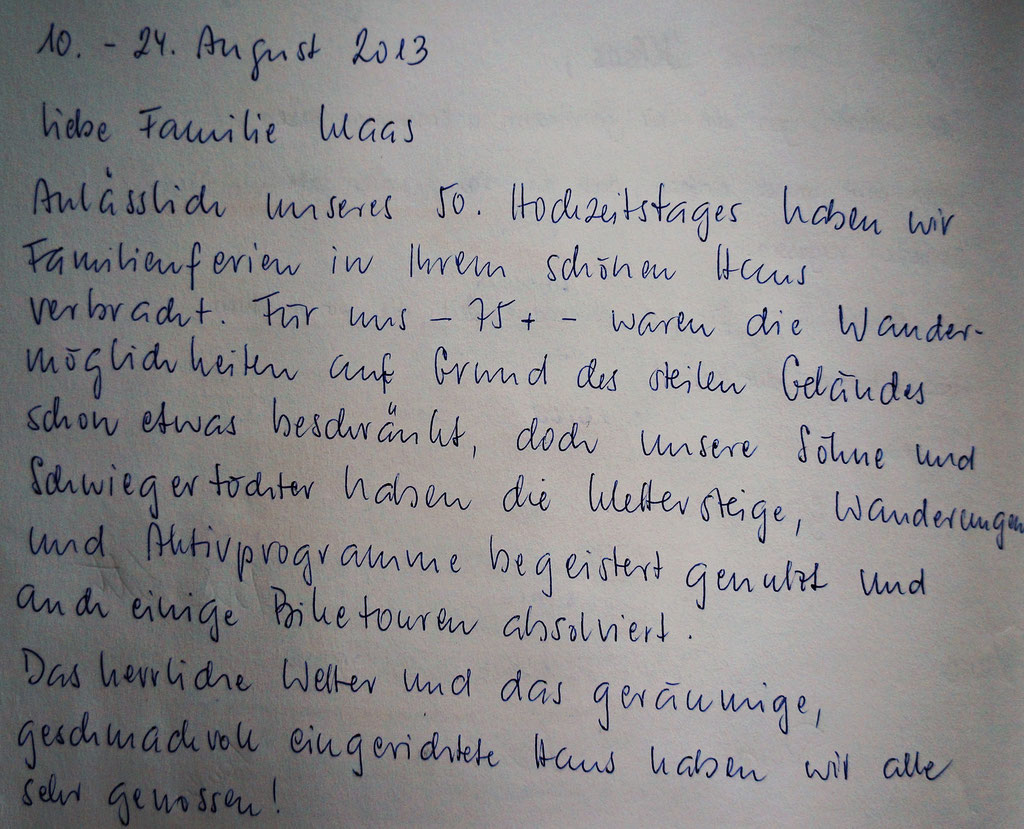 10. - 24. August 2013
liebe Familie Maas
Anlässlich unseres 50. Hochzeitstages haben wir
Familienferien in Ihrem schönen Haus
verbracht. Für uns – 75+ – waren die Wander-
möglichkeiten auf Grund des steilen Geländes
schon etwas beschränkt, doch unsere Söhne und
Schwiegertöchter haben die Klettersteige, Wanderungen
und Aktivprogramme begeistert genutzt und
auch einige Biketouren absolviert.
Das herrliche Wetter und das geräumige,
geschmackvoll eingerichtete Haus haben wir alle
sehr genossen!